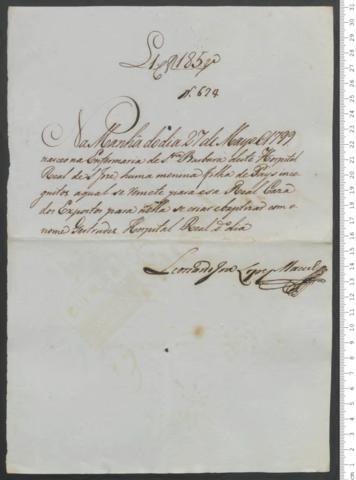 N. 674
Na Manhã do dia 27 de Mayo de 1799
nasceo na Enfermaria de Sta Barbara deste Hospital
Real de S. Joze huma menina filha de Pays inco
gnitos, aqual se remete para essa Real Caza
dos Expostos para nella se criar e baptizar com o
nome Gertrudes Hospital Real e dia
Leonardo Joze Lopes Maciel